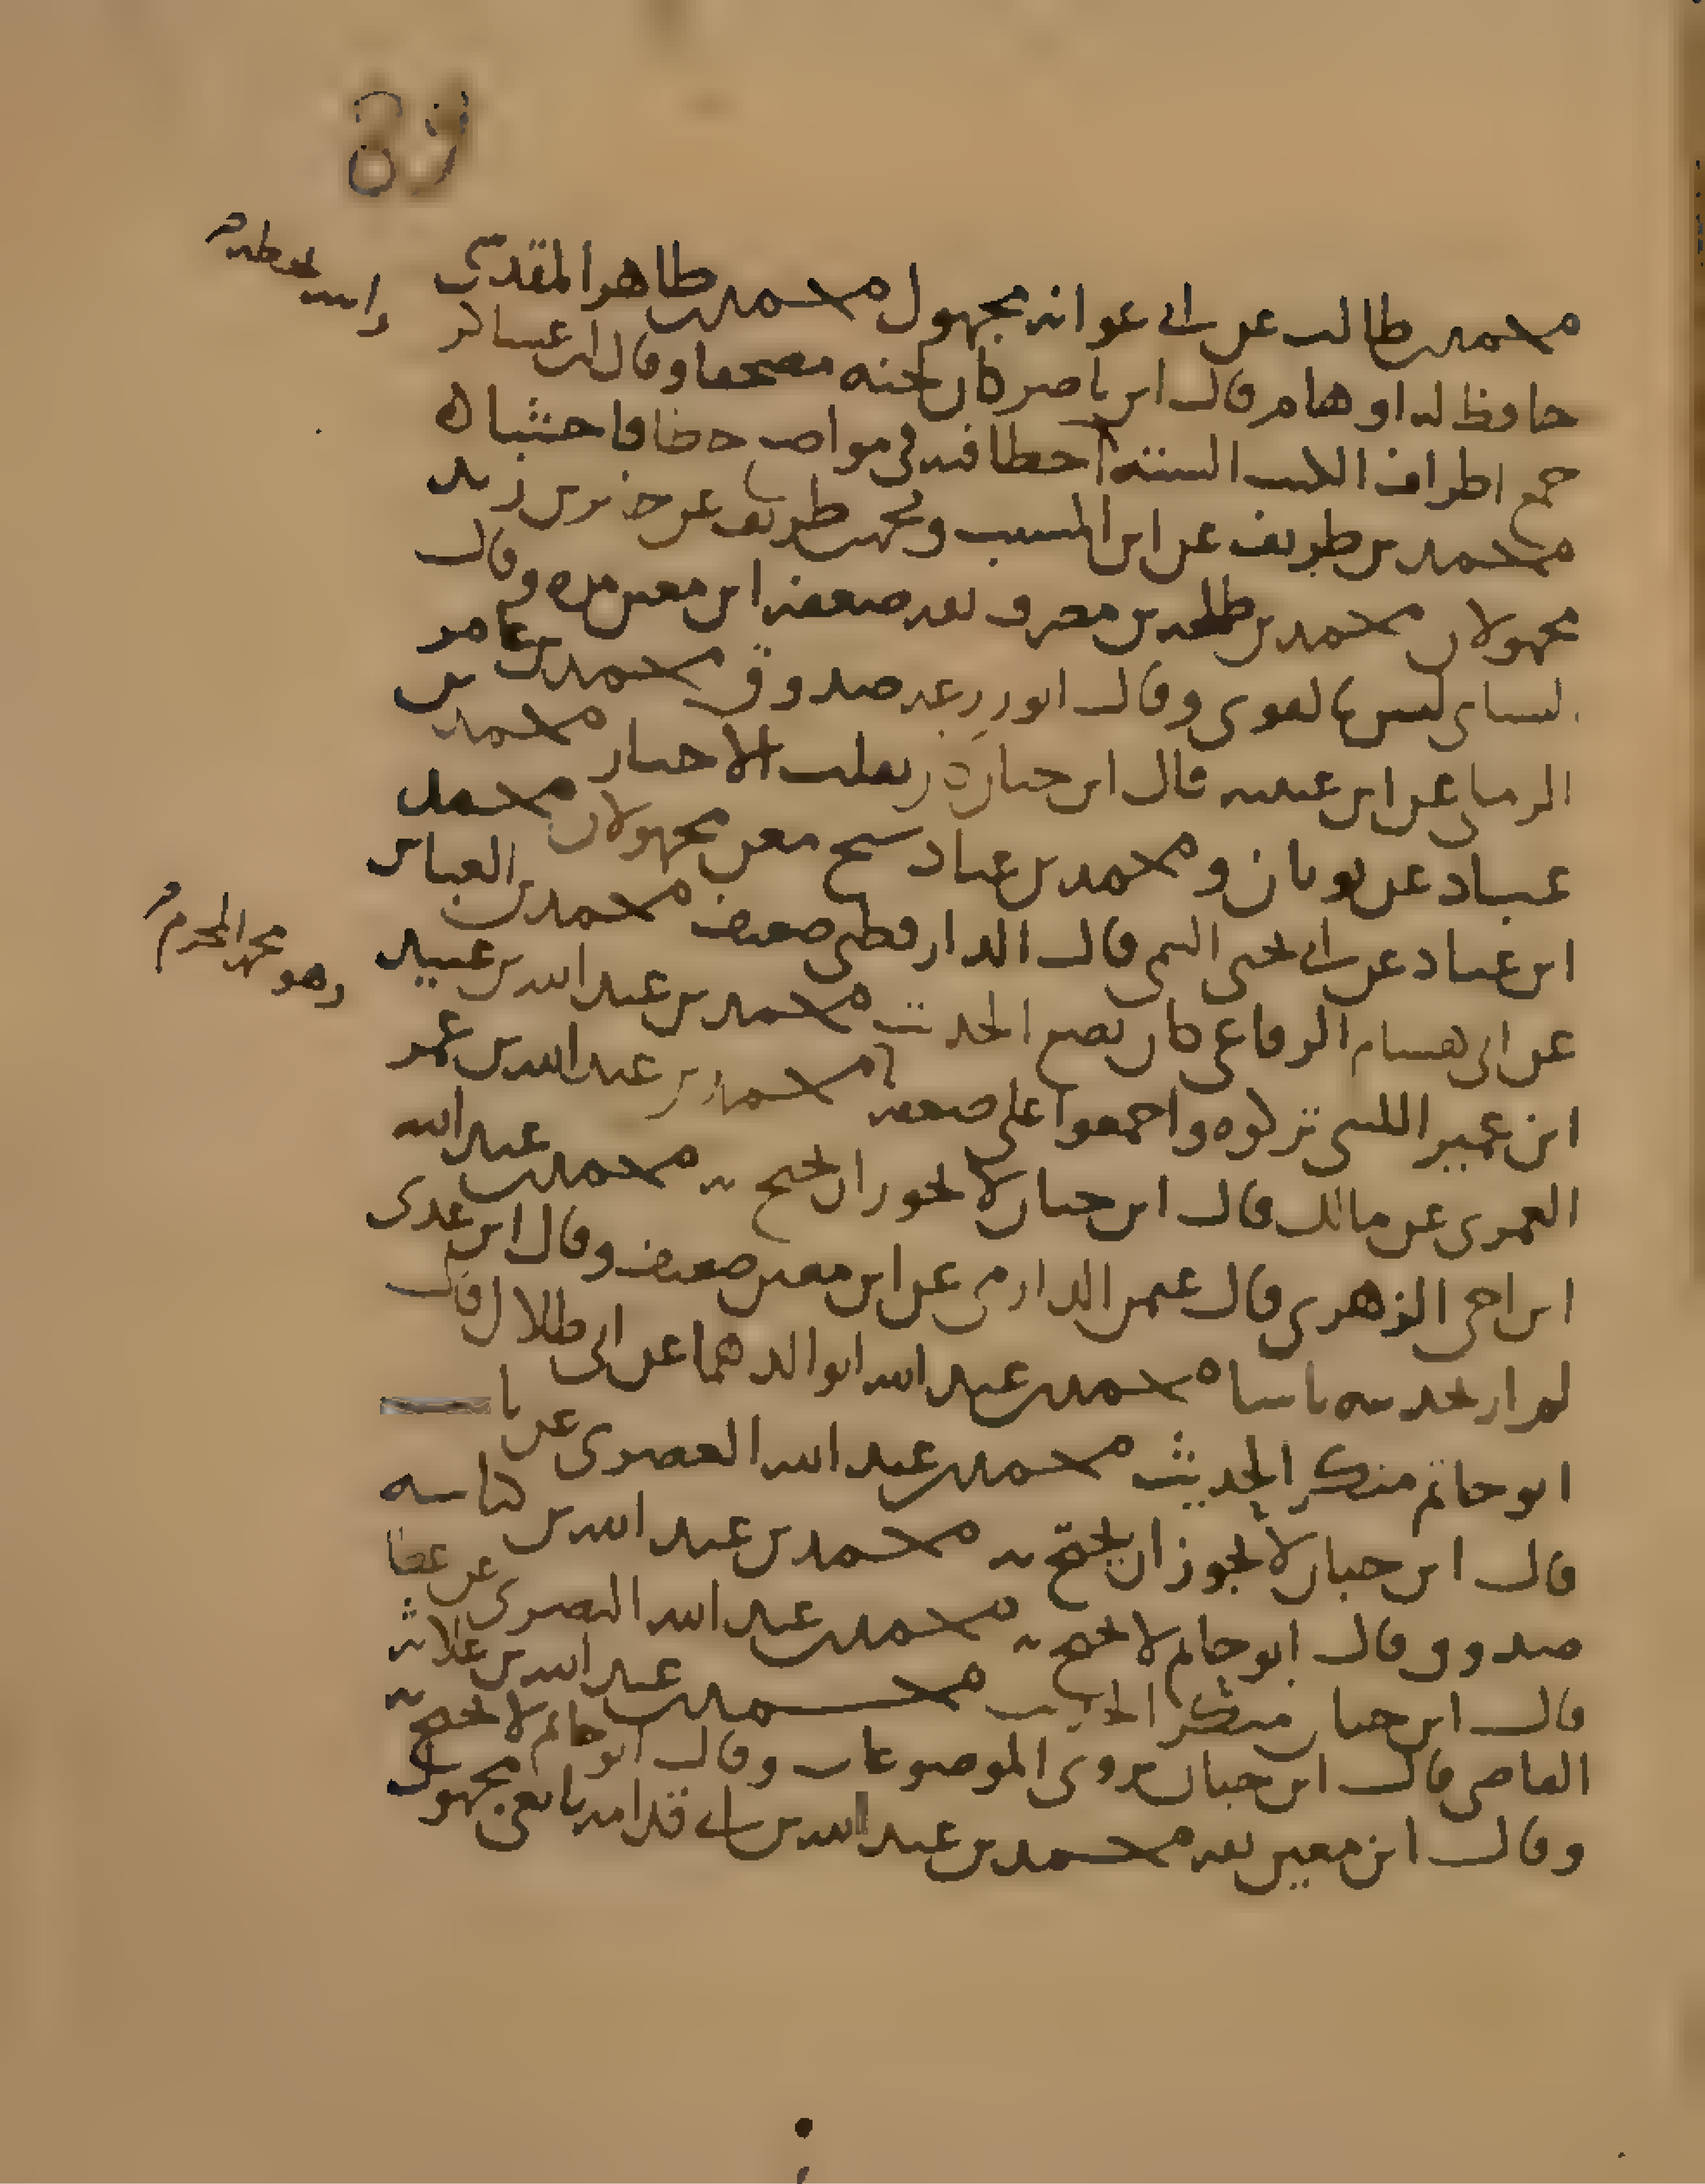 89
محمد بن طالب عن أبي عوانه مجهول محمد بن طاهر المقدسي
حافظ له اوهام قال ابن ناصر كان لحنه مصحفا وقال ابن عساكر
جمع اطراف الكتب الستة اخطا فيه في مواضع خطا فاحشا
محمد بن طريف عن ابن المسيب ومحمد بن طريف عن جابر بن زيد
مجهولان محمد بن طلحه بن مصرف ثقه ضعفه ابن معين مره وقال
النساي ليس بالقوي وقال ابو زرعه صدوق محمد بن عامر
الرملي عن ابن عيينه قال ابن حبان يقلب الاخبار محمد بن
عباد عن ثوبان ومحمد بن عباد شيخ معن مجهولان محمد
ابن عباد عن أبي يحيى التيمي قال الدارقطني ضعيف محمد بن العباس
عن ابي هشام الرفاعي كان يضع الحديث محمد بن عبد الله بن عبيد
ابن عمير الليثي تركوه واجمعوا على ضعفه محمد بن عبد الله بن عمر
العمري عن مالك قال ابن حبان لا يجوز ان يحتج به محمد بن عبد الله
ابن اخي الزهري قال عثمن الدارمي عن ابن معين ضعيف وقال ابن عدي
لم ار بحديثه باسا محمد بن عبد الله ابو الدهما عن ابي ظلال قال
ابو حاتم منكر الحديث محمد بن عبد الله العصري عن ثابت
قال ابن حبان لا يجوز ان يحتج به محمد بن عبد الله بن كناسه
صدوق وقال ابو حاتم لا يحتج به محمد بن عبد الله البصري عن عطا
قال ابن حبان منكر الحديث محمد بن عبد الله بن علاثه
القاضي قال ابن حبان يروي الموضوعات وقال ابو حاتم لا يحتج به
وقال ابن معين ثقه محمد بن عبد الله بن أبي قدامه تابعي مجهول
وهو محمد المحرم